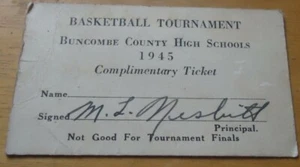 BASKETBALL TOURNAMENT
BUNCOMBE COUNTY HIGH SCHOOLS
1945
Complimentary Ticket
Name
Signed M. L. Nesbitt
Principal.
Not Good For Tournament Finals